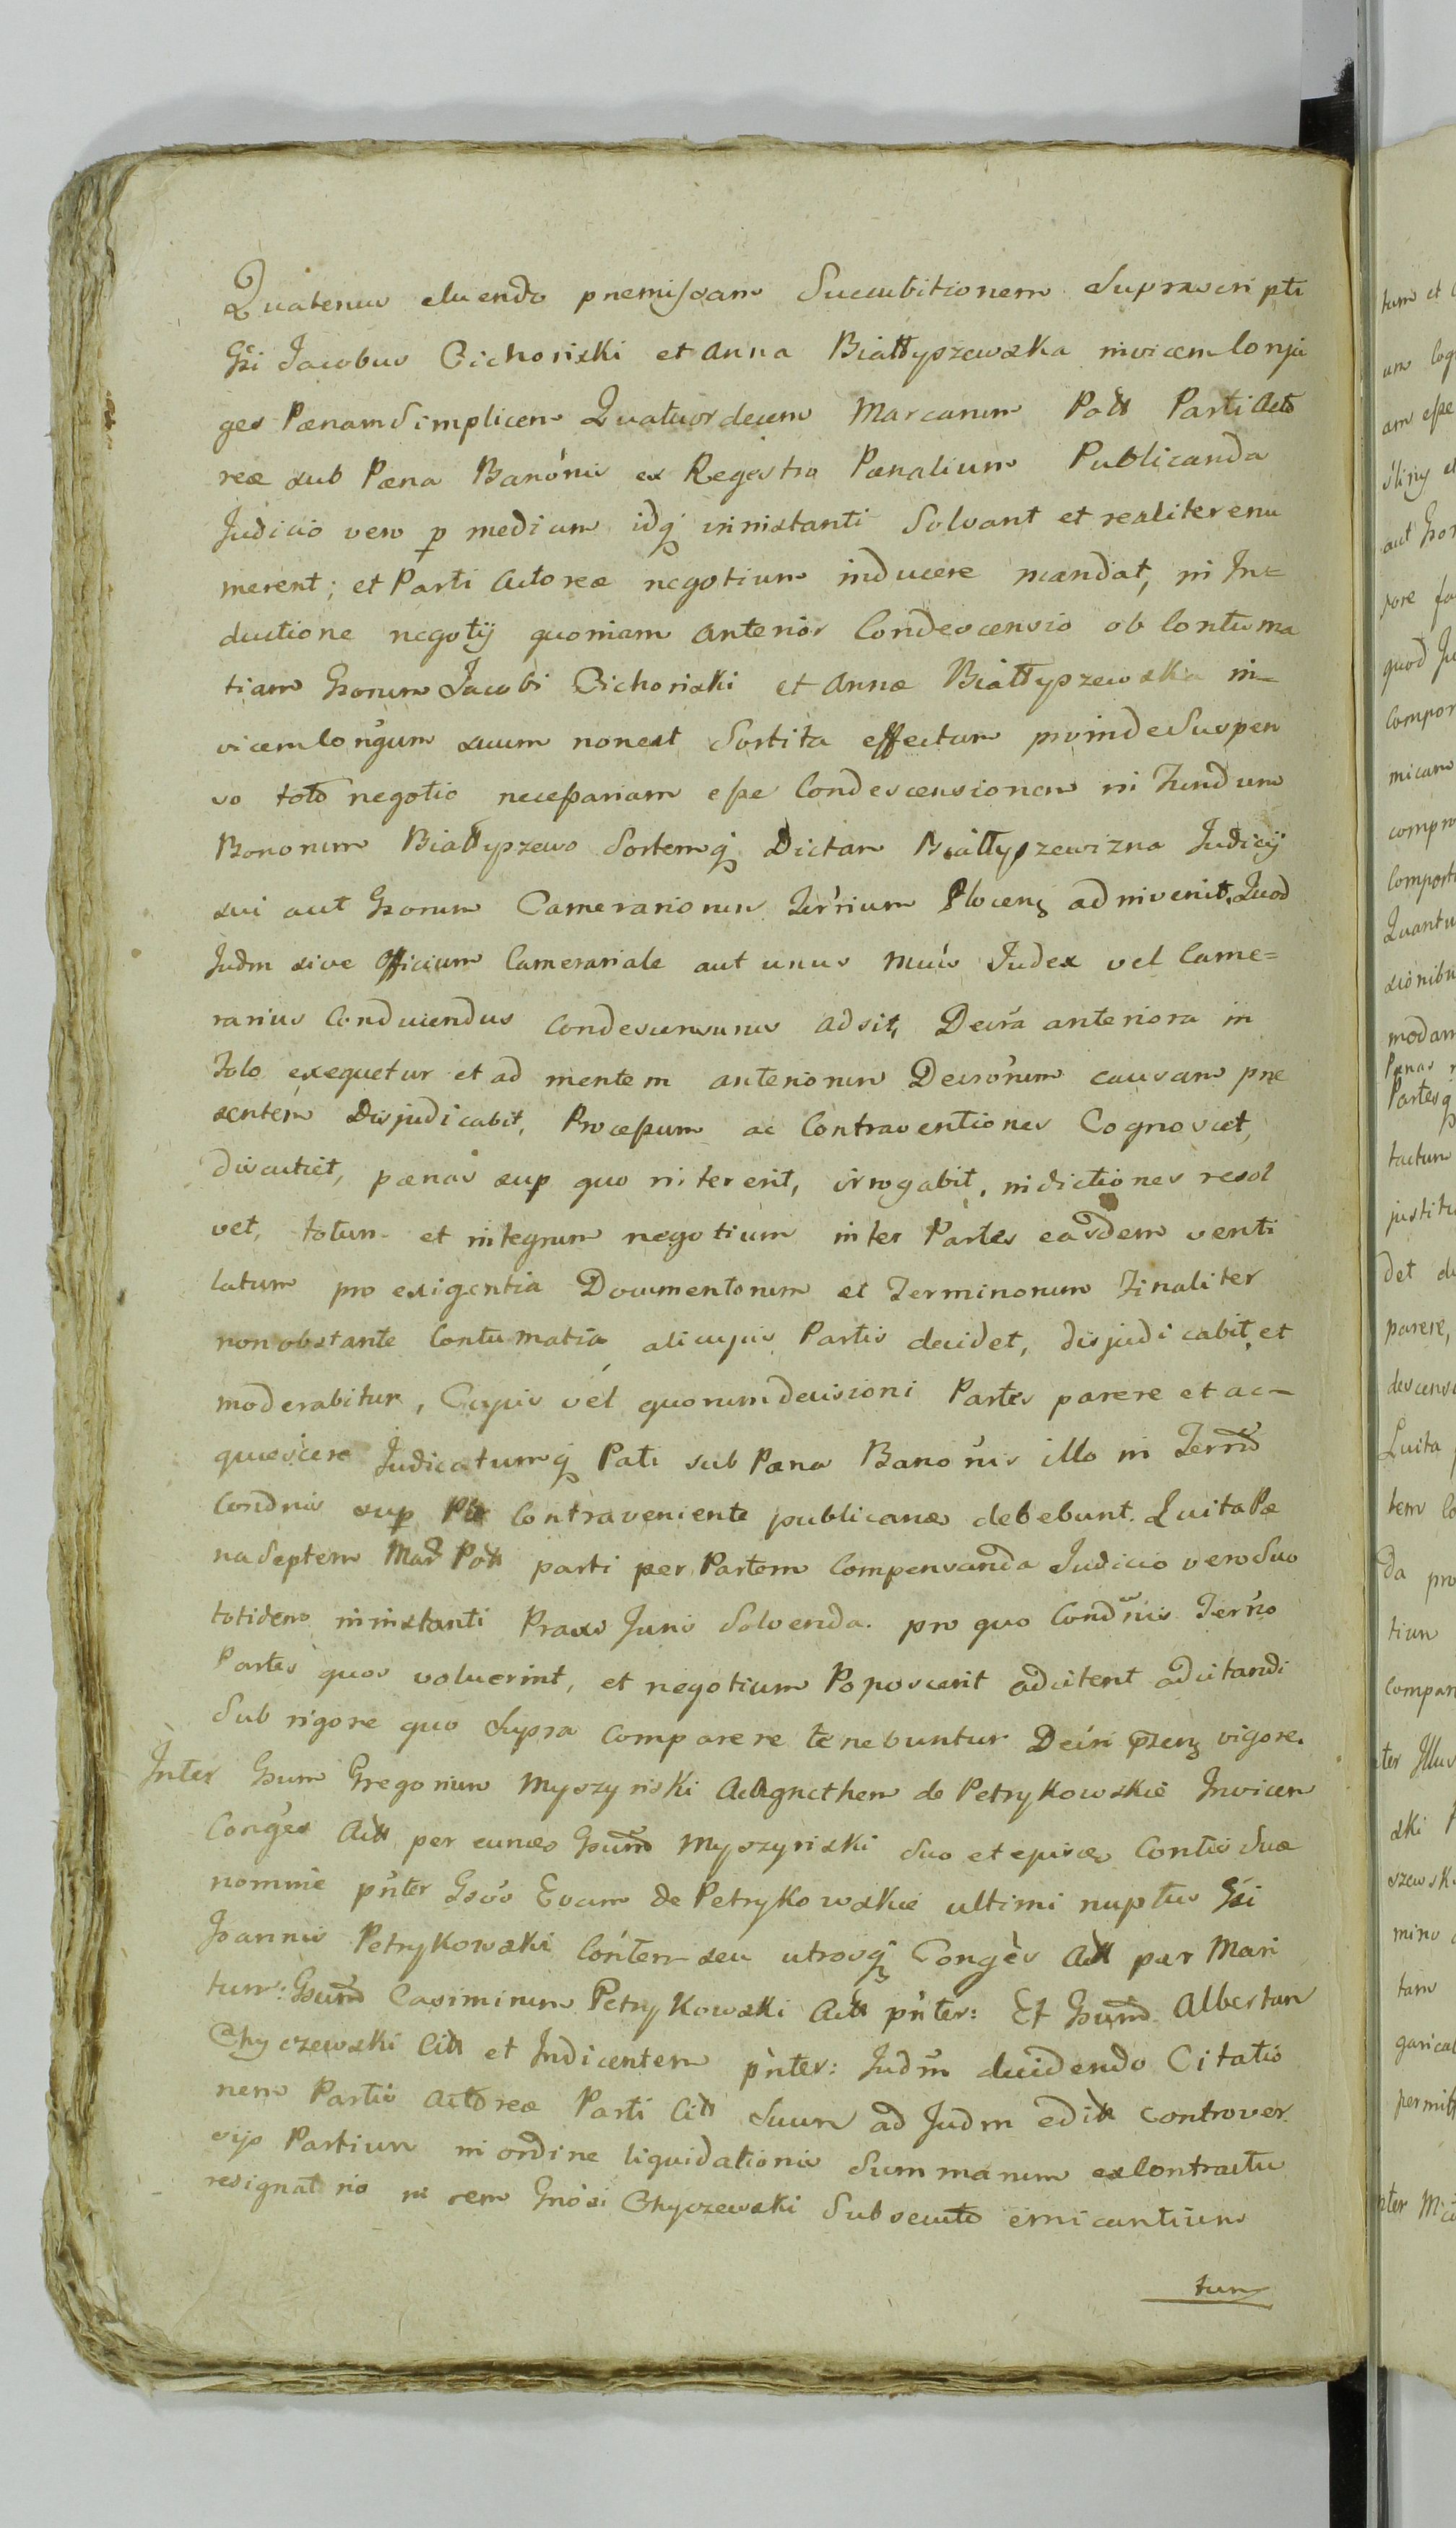 Quatenus eluendo præmissam Succubitionem Suprascripti
Gsi Jacobus Cichoński et Anna Białłyszewska invicem Conju
ges Pænam Simplicem Quatuordecem Marcarum Pott Parti Acto
reæ sub Pæna Banónis ex Regestro Pænalium Publicanda
Judicio vero p medium idq in instanti Solvant et realiter enu
merent; et Parti Actoreæ negotium inducere mandat, in In=
ductione negotij quoniam Anterior Condescensio ob Contuma
tiam Gsorum Jacobi Cichoński et Annæ Białłyszewska in-
vicem Conğum suum non est Sortita effectum proinde Suspen
so toto negotio necessariam esse Condescensionem in Fundum
Bonorum Białłyszewo Sortemq Dictam Białłyszewizna Judicij
sui aut Gsorum Camerariorum Terrium Plocenz adinvenit, Quod
Judm sive Officium Camerariale aut unus Muús Judex vel Came=
rarius Conducendus Condescensurus adsit, Decra anteriora in
Tolo exequetur et ad mentem anteriorum Decrorum causam præ
sentem Disjudicabit, Processum ac Contraventiones Cognoscet,
discutiet, pænas sup quo niterent, irrogabit, indictiones resol
vet, totum et integrum negotium inter Partes easdem venti
latum pro exigentia Documentorum et Terminorum Finaliter
non obstante Contumatia alicujus Partis decidet, disjudicabit, et
moderabitur, Cujus vel quorum decisioni Partes parere et ac-
quiescere Judicatumq Pati sub Pæna Banónis illo in Terrno
Condnis sup Pte Contraveniente publicanæ debebunt. Luita Pæ
na Septem Mar Pott parti per Partem Compensanda Judicio vero Suo
totidem in instanti Praxs Juris Solvenda. pro quo Condnis Terrno
Partes quos voluerint, et negotium Poposcerit adcitent adcitandi
Sub rigore quo Supra Comparere tenebuntur Decri pzenz vigore.
Inter Gsum Gregorium Myszyński Ac Agnethem de Petrykowskie Invicem
Conğes Act per eumæ Gsum Myszyński Suo et ejusæ Contis Suæ
nomine pnter Gsos Evam de Petrykowskie ultimi nuptus Gsi
Joannis Petrykowski Contem seu utrosq Conges Act per Mari
tum: Gsum Casimirum Petrykowski Act pnter: Et Gsum Albertum
Chyczewski Citt et Indicentem pnter: Judm decidendo Citatio
nem Partis Actoreæ Parti Citt Suum ad Judm editt Controver
sijs Partium in ordine liquidationis Summarum ex Contractu
resignatrio in rem Gnosi Chyczewski Subsecuto emicantium
tum